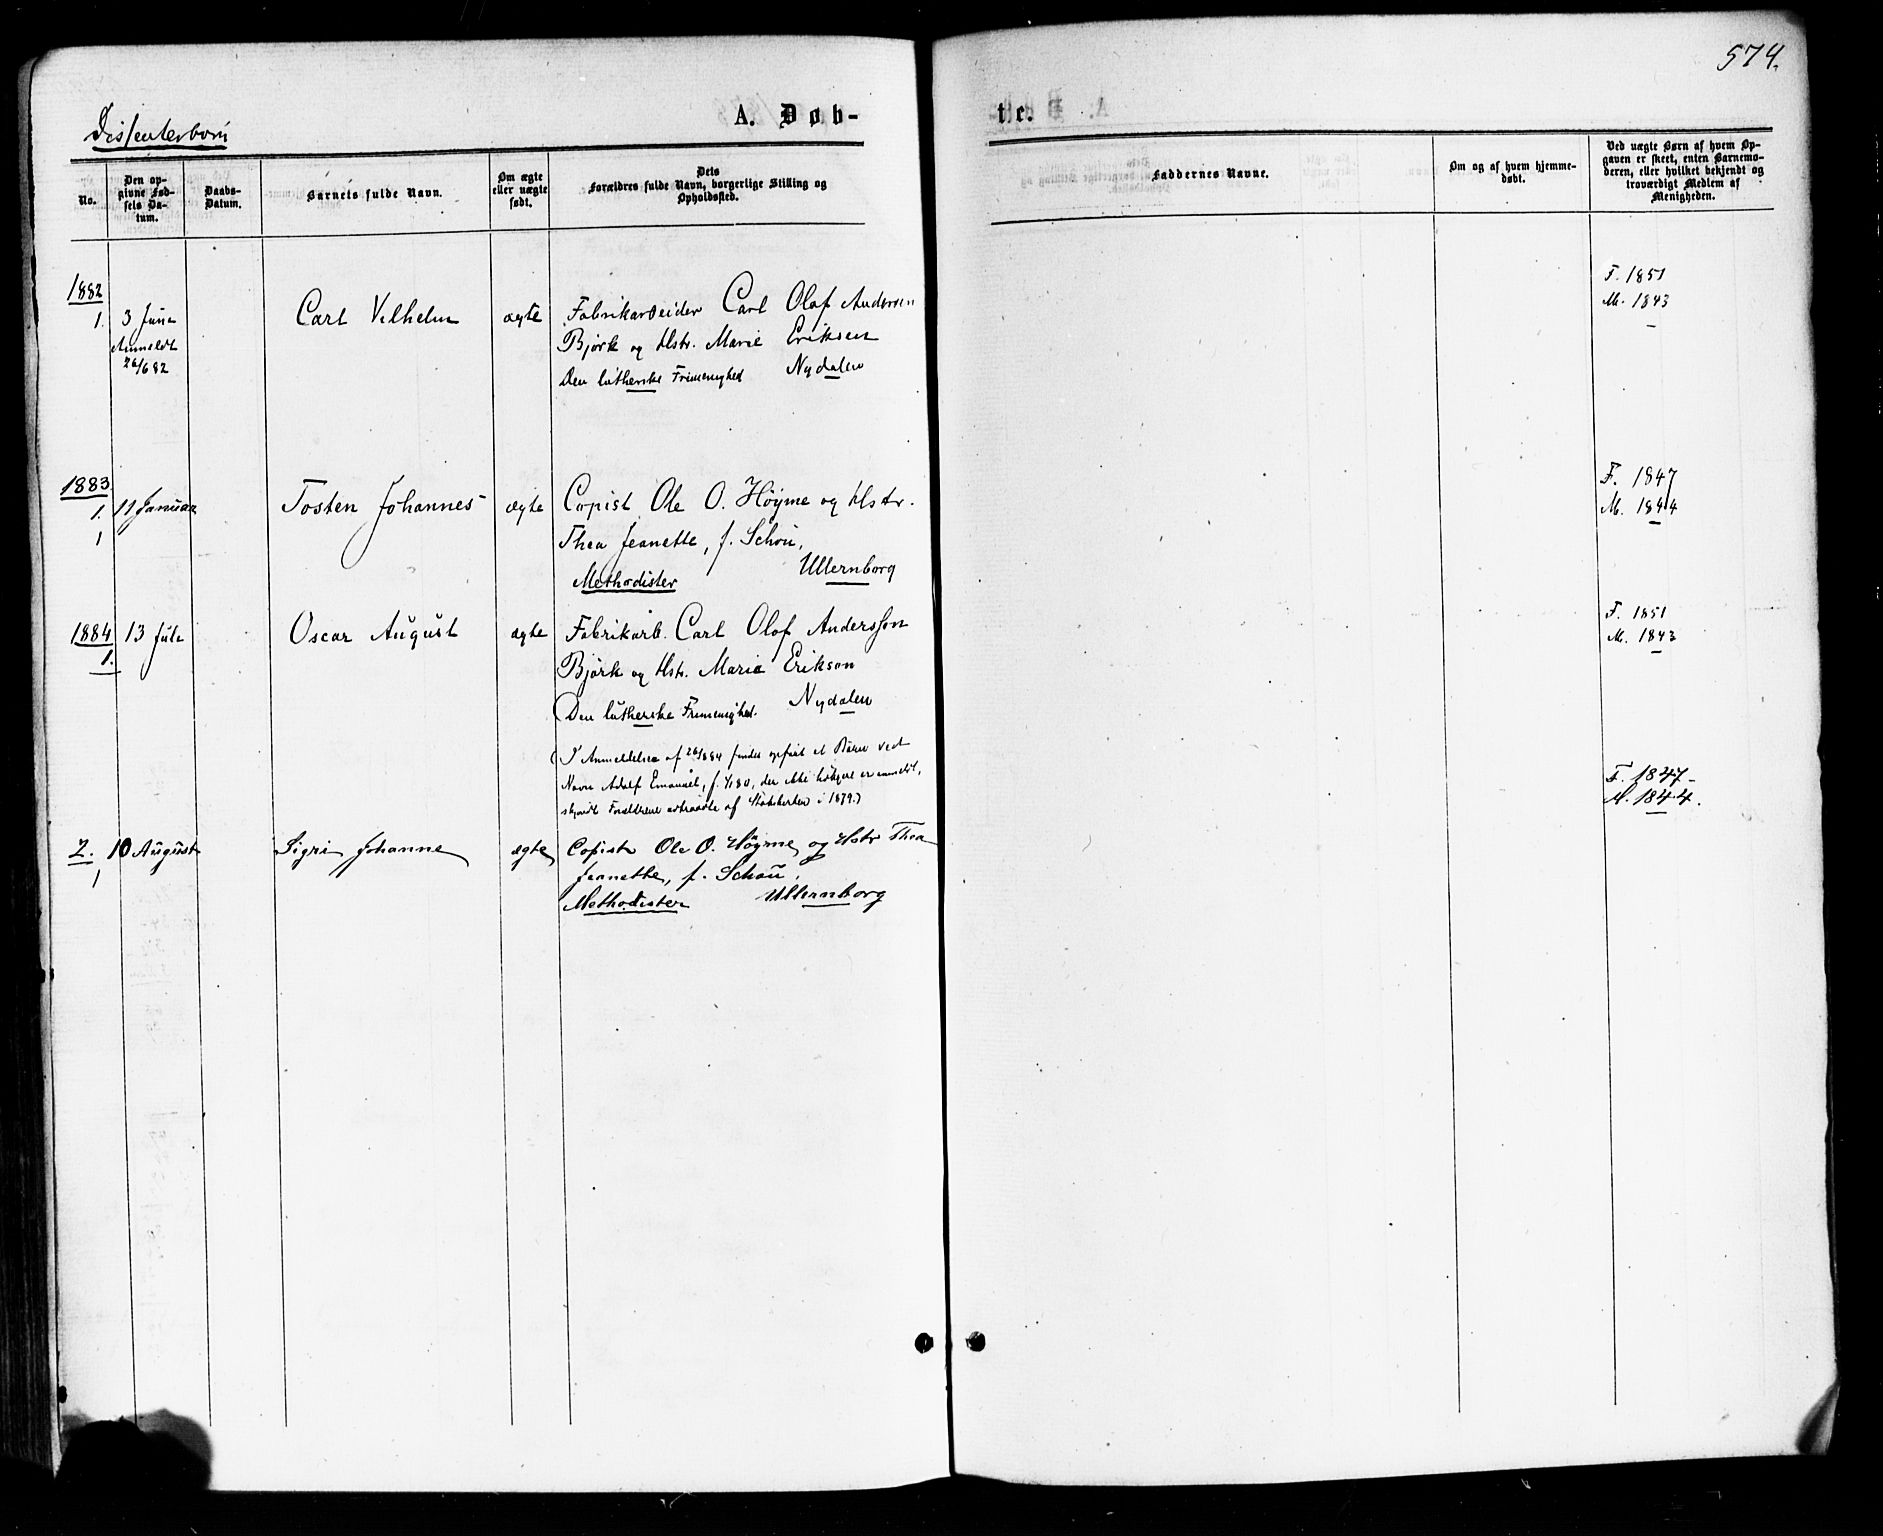 574.
Dissenterbørn
A. Døb-
te.
No.
Den op-
givne Fød-
sels Da-
tum.
Daabs-
Datum.
Barnets fulde Navn.
Om ægte
eller uægte
født.
Dets
Forældres fulde Navn, borgerlige Stilling og
Opholdssted.
Faddernes Navne.
Om og af hvem hjemme-
døbt.
Ved uægte Børn af hvem Op-
gaven er skeet, enten Barnemo-
deren, eller hvilket bekjendt og
troværdigt Medlem af
Menigheden.
1882
1.
3 Juni
Anmeldt
26/6 82
Carl Vilhelm
ægte
Fabrikarbeider Carl Olof Andersen
Bjørk og Hstr. Marie Eriksen
Den lutherske Frimenighed Nydalen
F. 1851
M. 1843
1883
1.
1
11 Januar
Tosten Johannes
ægte
Copist Ole O. Höyme og Hstr.
Thea Jeanette, f. Schou,
Methodister Ullernborg
F. 1847
M. 1844
1884
1.
13 Juli
Oscar August
ægte
Fabrikarb. Carl Olof Andersson
Bjørk og Hstr. Maria Erikson
Den lutherske Frimenighed. Nydalen
F. 1851
M. 1843
(I Anmeldelse af findes opført et Barn ved
Navn Adolf Emanuel, f. der ikke tidligere er anmeldt,
skjøndt Forældrene udtraadte af Statskirken i 1879.)
2.
1
10 August
Sigri Johanne
ægte
Copist Ole O. Höyme og Hstr Thea
Jeanette, f. Schou,
Methodister Ullernborg
F. 1847-
M. 1844.